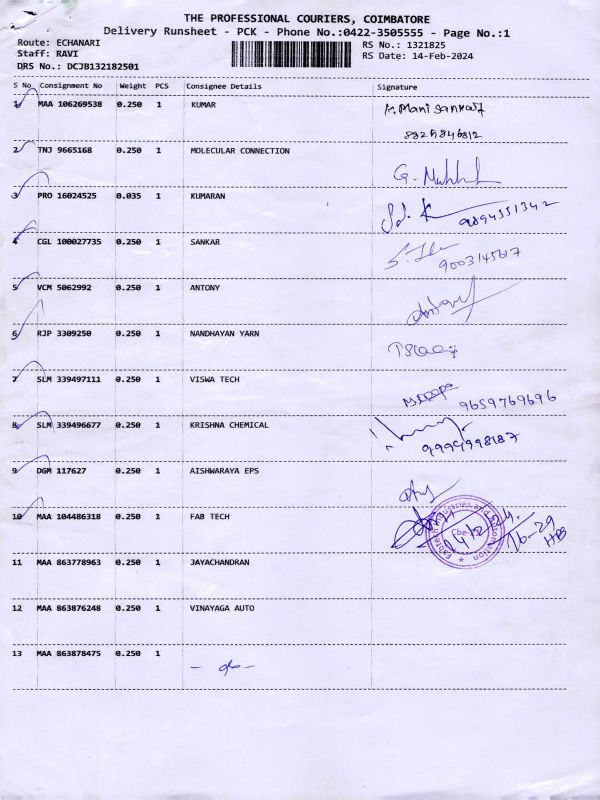 THE PROFESSIONAL COURIERS, COIMBATORE
Delivery Runsheet - PCK - Phone No.:0422-3505555 - Page No.:1
Route: ECHANARI
Staff: RAVI
DRS No.: DCJB132182501
RS No.: 1321825
RS Date: 14-Feb-2024
S No Consignment No Weight PCS Consignee Details Signature
1 MAA 106269538 0.250 1 KUMAR
2 TNJ 9665168 0.250 1 MOLECULAR CONNECTION
3 PRO 16024525 0.035 1 KUMARAN 9894551342
4 CGL 100027735 0.250 1 SANKAR 9003145617
5 VCM 5062992 0.250 1 ANTONY
6 RJP 3309250 0.250 1 NANDHAYAN YARN
7 SLM 339497111 0.250 1 VISWA TECH 9659769696
8 SLM 339496677 0.250 1 KRISHNA CHEMICAL
9 DGM 117627 0.250 1 AISHWARAYA EPS
10 MAA 104486318 0.250 1 FAB TECH
11 MAA 863778963 0.250 1 JAYACHANDRAN
12 MAA 863876248 0.250 1 VINAYAGA AUTO
13 MAA 863878475 0.250 1